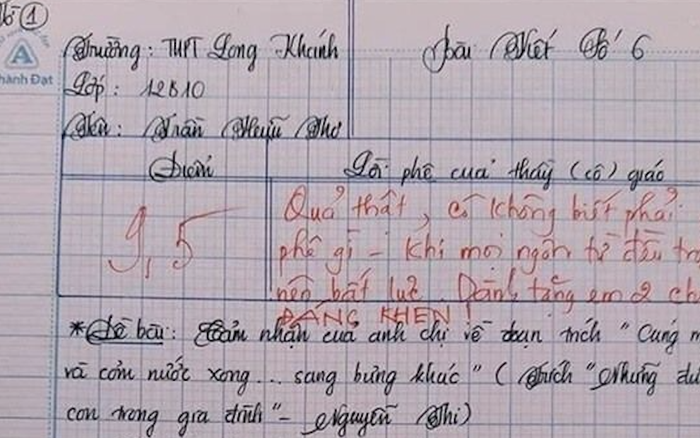 Tờ 1
A
Thành Đạt
Trường: THPT Long Khánh
Bài Viết Số 6
Lớp: 12B10
Tên: Trần Hữu Thơ
Điểm
Lời phê của thầy (cô) giáo
9,5
Quả thật, cô không biết phải
phê gì - khi mọi ngôn từ đều trở
nên bất lực. Dành tặng em 2 ch
ĐÁNG KHEN!
*Đề bài: Cảm nhận của anh chị về đoạn trích "Cúng m
và cơm nước xong... sang bưng khúc" (Trích "Những đứ
con trong gia đình" - Nguyễn Thi)